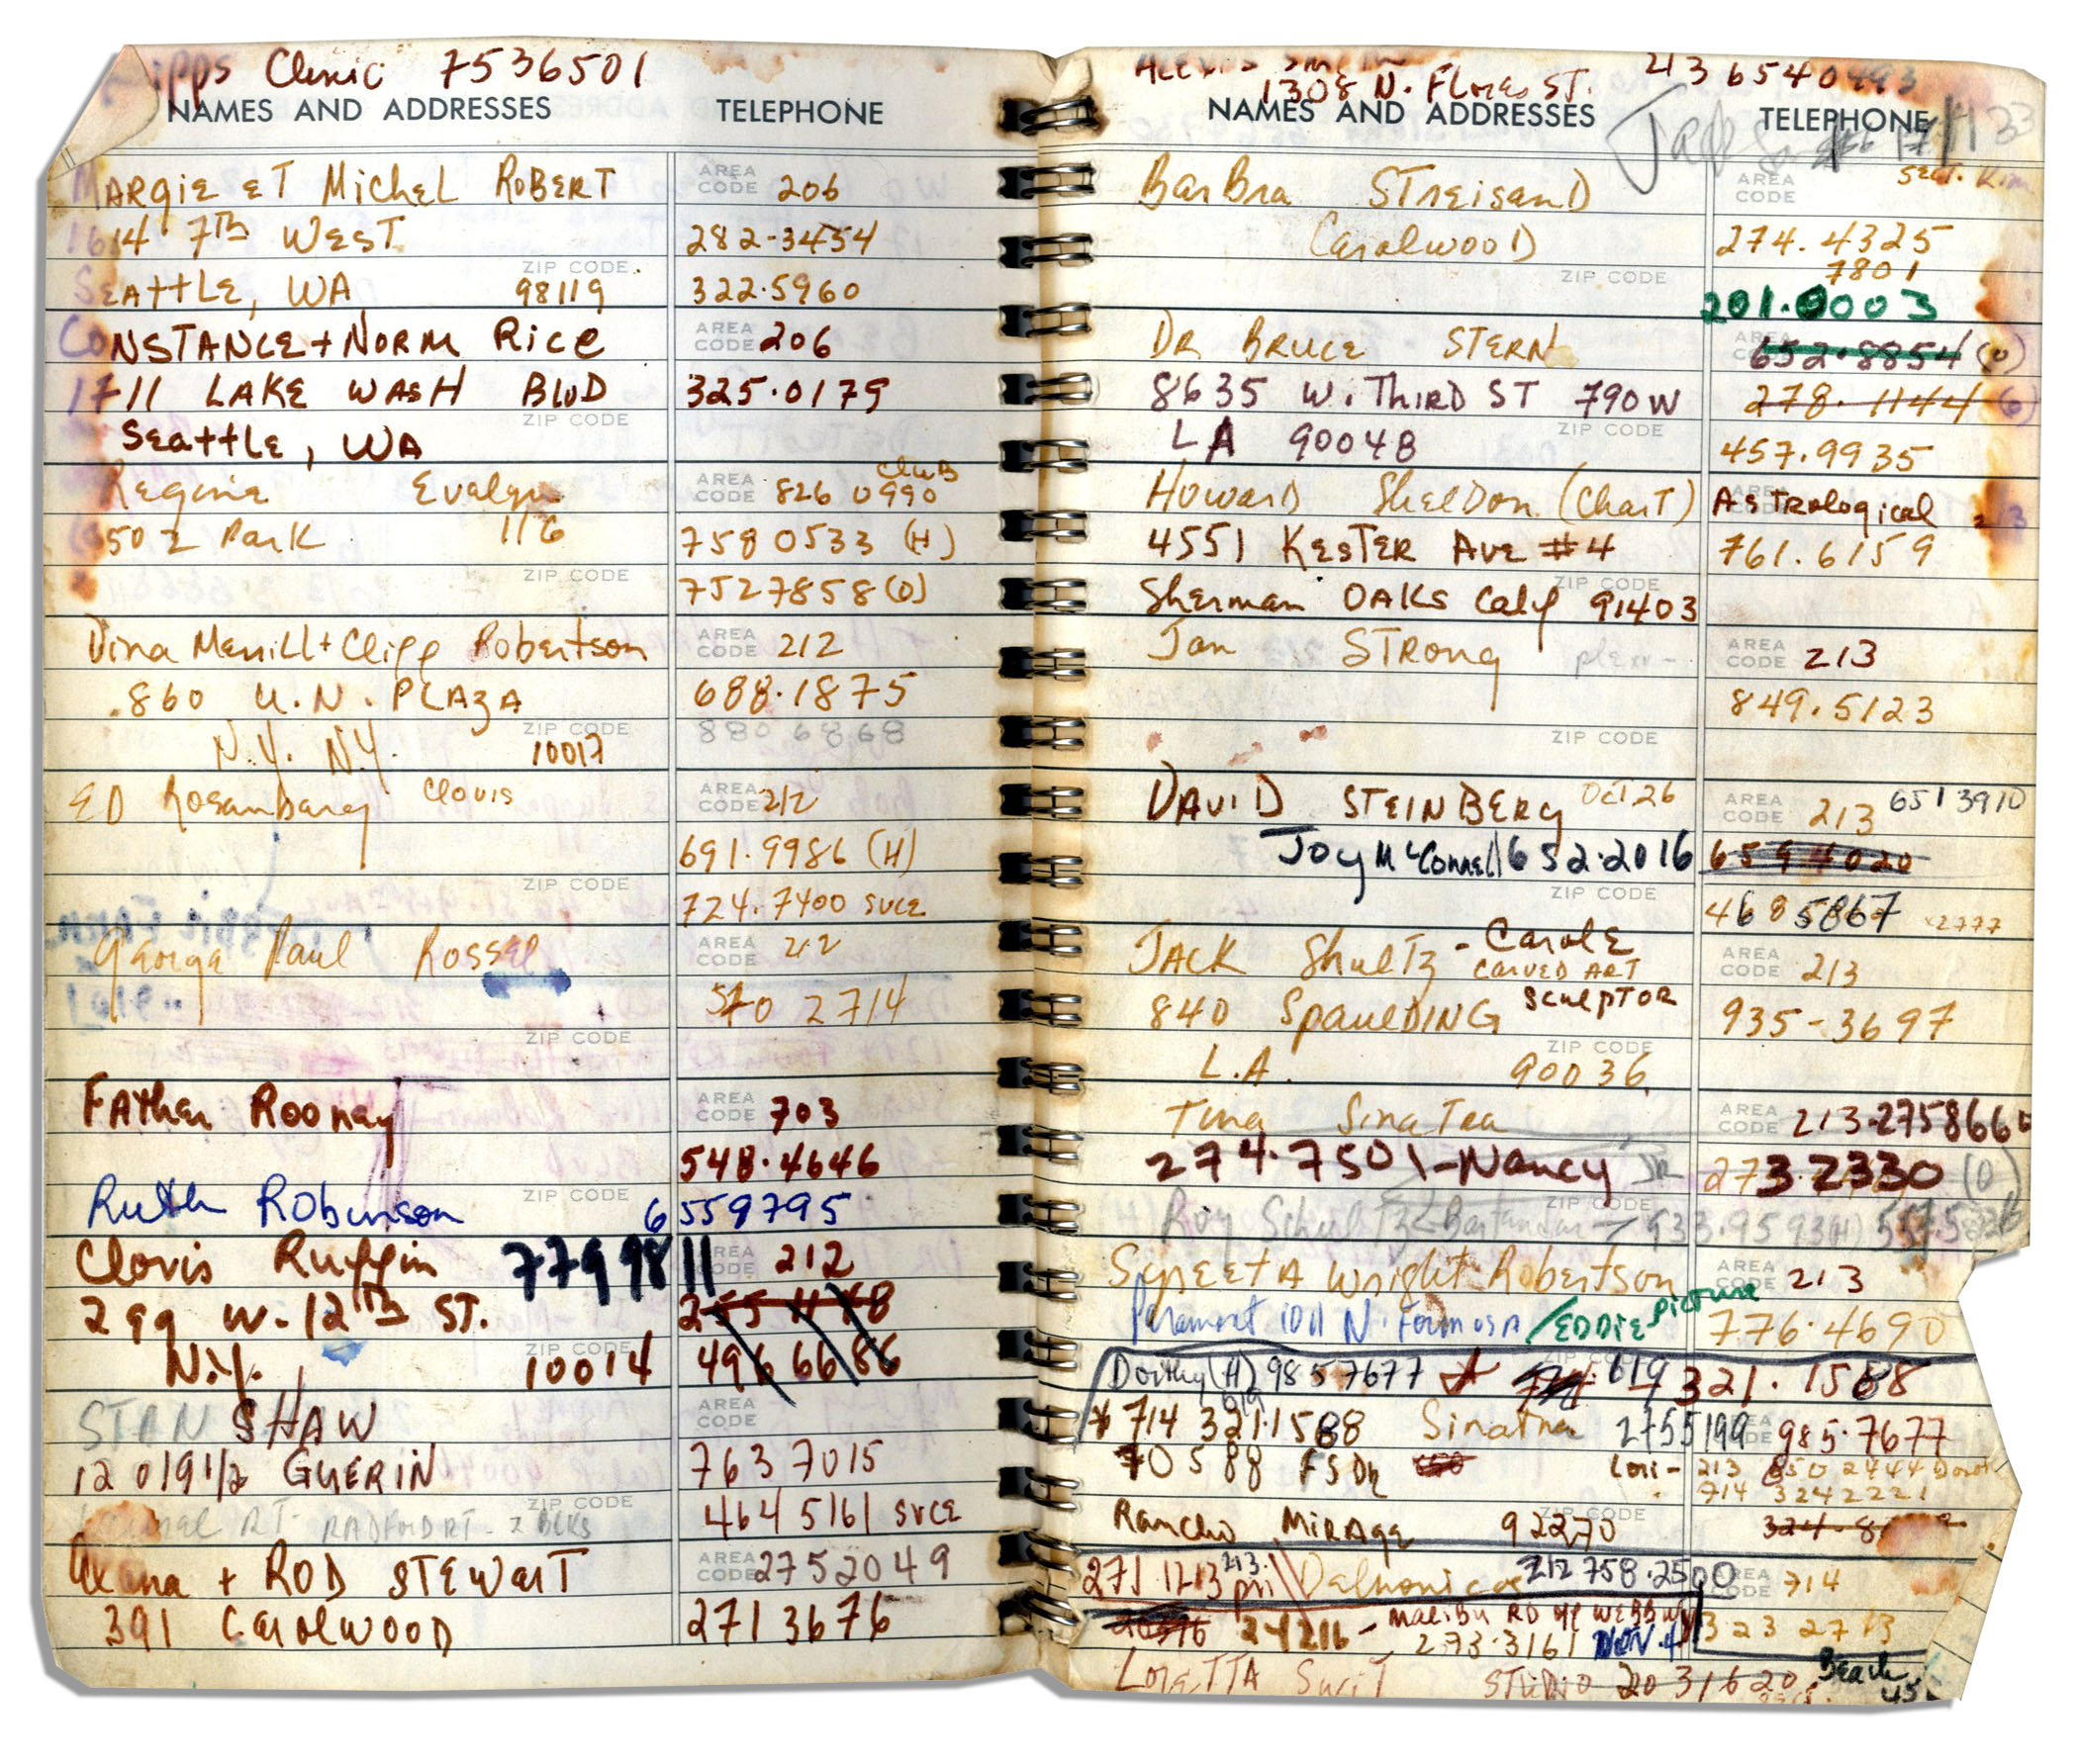 Clinic 7536501
NAMES AND ADDRESSES TELEPHONE
MARgiE ET Michel RoBERT AREA CODE 206
1614 7TH WEST 282-3454
ZIP CODE
SEAttLE, WA 98119 322.5960
CONSTANCE + NORM Rice AREA CODE 206
1711 LAKE WASH BlvD 325.0179
ZIP CODE
Seattle, WA
Regine Evelyn AREA CODE 826 0990 cluB
502 Park 116 758 0533 (H)
ZIP CODE
752 7858 (O)
Dina Merrill + Cliff Robertson AREA CODE 212
860 U.N. PLAZA 688.1875
ZIP CODE
N.Y. N.Y. 10017
ED Rosenberg Clovis AREA CODE 212
691.9986 (H)
ZIP CODE
724.7400 SVCE
George Paul Rossel AREA CODE 212
2714
ZIP CODE
FAther Rooney AREA CODE 703
548.4646
ZIP CODE
Ruth Robinson 6559795
Clovis Ruffin 7799811 AREA CODE 212
299 W. 12TH ST.
ZIP CODE
N.Y. 10014 496 6686
STAN SHAW AREA CODE
12019 1/2 GUERIN 763 7015
ZIP CODE
RADFORD RT - 2 BLKS 464 5161 SVCE
+ ROD STEWarT AREA CODE 2752049
391 CarolWOOD 271 3676
1308 N. Flores ST. 213 6540493
NAMES AND ADDRESSES TELEPHONE
BarBra STreisanD AREA CODE Kim
CarolwooD 274.4325
ZIP CODE 7801
201.0003
DR BRUCE STERN AREA CODE 652.8854 (O)
8635 W. THiRD ST 790W 278.1144
ZIP CODE
LA 90048 457.9935
HowarD ShelDon (CharT) AsTrological 213
4551 KESTER AVE #4 761.6159
ZIP CODE
Sherman OAKS Calif 91403
Jan STRong AREA CODE 213
849.5123
ZIP CODE
DAViD STEINBERg Oct 26 AREA CODE 213 6513910
Joy McConnell 652.2016 6594020
ZIP CODE
468 5867 x2777
JACK ShulTz - CarolE AREA CODE 213
CARVED ART
840 SpaulDING SculpTOR 935-3697
ZIP CODE
L.A. 90036
Tina SinaTra AREA CODE 213.2758660
274.7501 - Nancy JR 273 2330 (O)
ZIP CODE
Roy Schultz Bartender 933.9593 (H)
SyreetA Wright Robertson AREA CODE 213
1011 N. Formosa / EDDIE picture 776.4690
(H) 985 7677 619 321.1588
714 321.1588 Sinatra 2755199 985.7677
70588 FSDR Lori - 213 850 2444
714 3242221
ZIP CODE
Rancho MiRAge 92270
271.1213 213 212 758.2500 AREA CODE 714
24216 - MALIBU RD 323 2713
273.3161 NOV 4
LoreTTA SwiT STUDIO 2031620 Beach